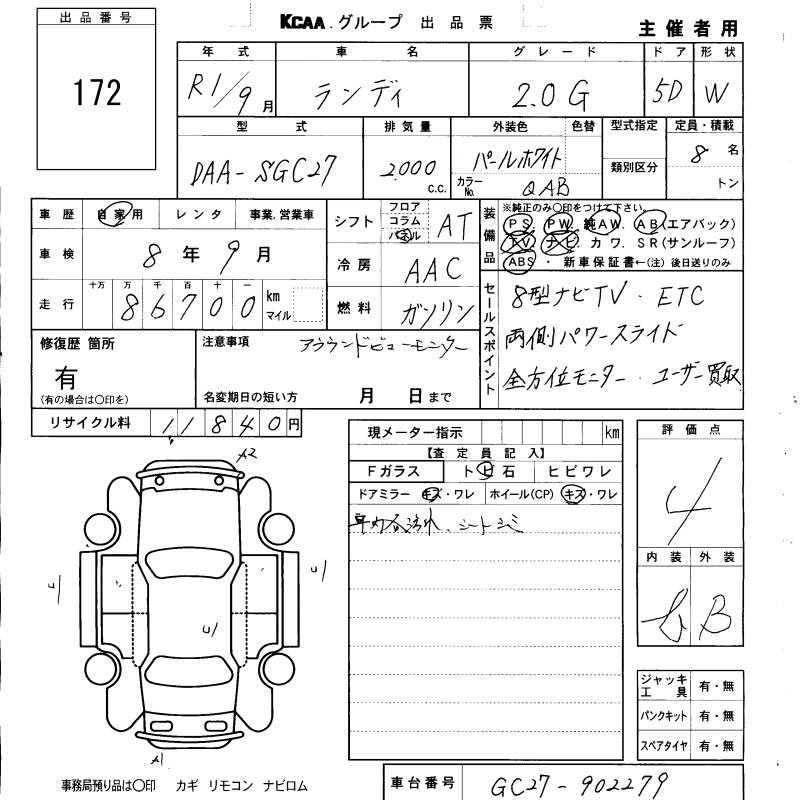 出品番号
172
KCAA.グループ 出品票
主催者用
年式 車名 グレード ドア 形状
R1/9月 ランディ 2.0G 5D W
型式 排気量 外装色 色替 型式指定 定員・積載
DAA-SGC27 2,000 c.c. パールホワイト 8名
カラーNo. QAB 類別区分 トン
車歴 自家用 レンタ 事業.営業車
車検 8年9月
走行 十万 万 千 百 十 一
86700 km マイル
シフト フロア コラム パネル AT
冷房 AAC
燃料 ガソリン
装備品 ※純正のみ〇印をつけて下さい。
PS. PW. 純AW. AB(エアバック)
TV. ナビ. カワ. SR(サンルーフ)
ABS・ 新車保証書←(注)後日送りのみ
セールスポイント
8型ナビTV・ETC
両側パワースライド
全方位モニター・ユーザー買取
修復歴 箇所
有
(有の場合は〇印を)
注意事項 アラウンドビューモニター
名変期日の短い方 月 日まで
リサイクル料 11840円
現メーター指示 km
【査定員記入】
Fガラス トビ石 ヒビワレ
ドアミラー キズ・ワレ ホイール(CP) キズ・ワレ
車内各汚れ、シートシミ
評価点
4
内装 外装
B
A2
U1
U1
U1
A1
ジャッキ工具 有・無
パンクキット 有・無
スペアタイヤ 有・無
事務局預り品は〇印 カギ リモコン ナビロム
車台番号 GC27-902279